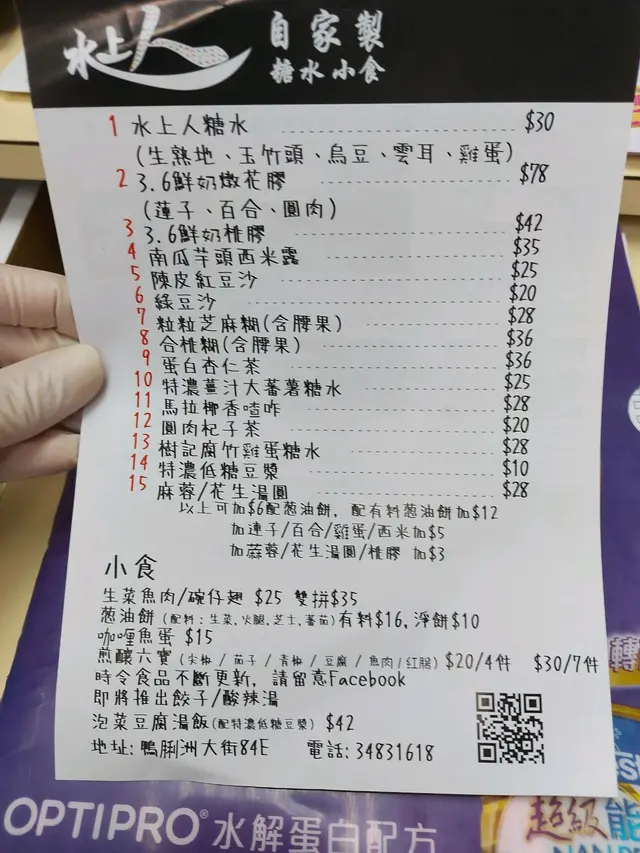 水上人
自家製
糖水小食
1 水上人糖水 $30
(生熟地、玉竹頭、烏豆、雲耳、雞蛋)
2 3.6鮮奶燉花膠 $78
(蓮子、百合、圓肉)
3 3.6鮮奶椎膠 $42
4 南瓜芋頭西米露 $35
5 陳皮紅豆沙 $25
6 綠豆沙 $20
7 粒粒芝麻糊(含腰果) $28
8 合桃糊(含腰果) $36
9 蛋白杏仁茶 $36
10 特濃薑汁大蕃薯糖水 $25
11 馬拉椰香喳咋 $28
12 圓肉杞子茶 $20
13 樹記腐竹雞蛋糖水 $28
14 特濃低糖豆漿 $10
15 麻蓉/花生湯圓 $28
以上可加$6配葱油餅, 配有料葱油餅加$12
加連子/百合/雞蛋/西米加$5
加蔴蓉/花生湯圓/桃膠 加$3
小食
生菜魚肉/碗仔翅 $25 雙拼$35
葱油餅(配料:生菜,火腿,芝士,蕃茄)有料$16,淨餅$10
咖喱魚蛋 $15
煎釀六寶(尖椒/茄子/青椒/豆腐/魚肉/紅腸)$20/4件 $30/7件
時令食品不斷更新, 請留意Facebook
即將推出餃子/酸辣湯
泡菜豆腐湯飯(配特濃低糖豆漿) $42
地址:鴨脷洲大街84E 電話:34831618
OPTIPRO® 水解蛋白配方
超級能
轉